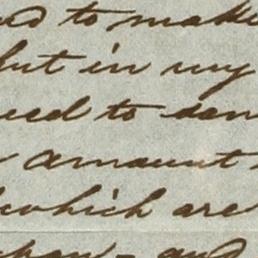 to make
but in my
used to san
amount
which are
and